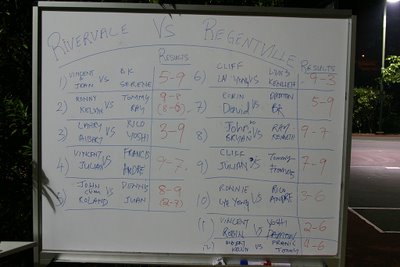 RIVERVALE VS REGENTVILLE
RESULTS
1) VINCENT VS B.K
JOAN SERENE 5-9
2) RONNY VS TOMMY 9-8
KELVIN RAY
3) LARRY VS RICO 3-9
ALBERT YOSHI
4) VINCENT VS FRANCIS 9-7
JULIAN ANDRE
5) JOHN VS DENNIS 8-9
ROLAND JUAN (2-7)
RESULTS
6) CLIFF VS LOUIS 9-3
KENNETH
7) ROBIN VS 5-9
David BK
8) John VS RAY 9-7
BRYAN KENNETH
9) CLIFF VS 7-9
JULIAN
10) RONNIE VS RICO 3-6
YONG ANDRE
11) VINCENT VS YOSHI 2-6
ROBIN
12) ALBERT VS FRANCIS
KELVIN TOMMY -6